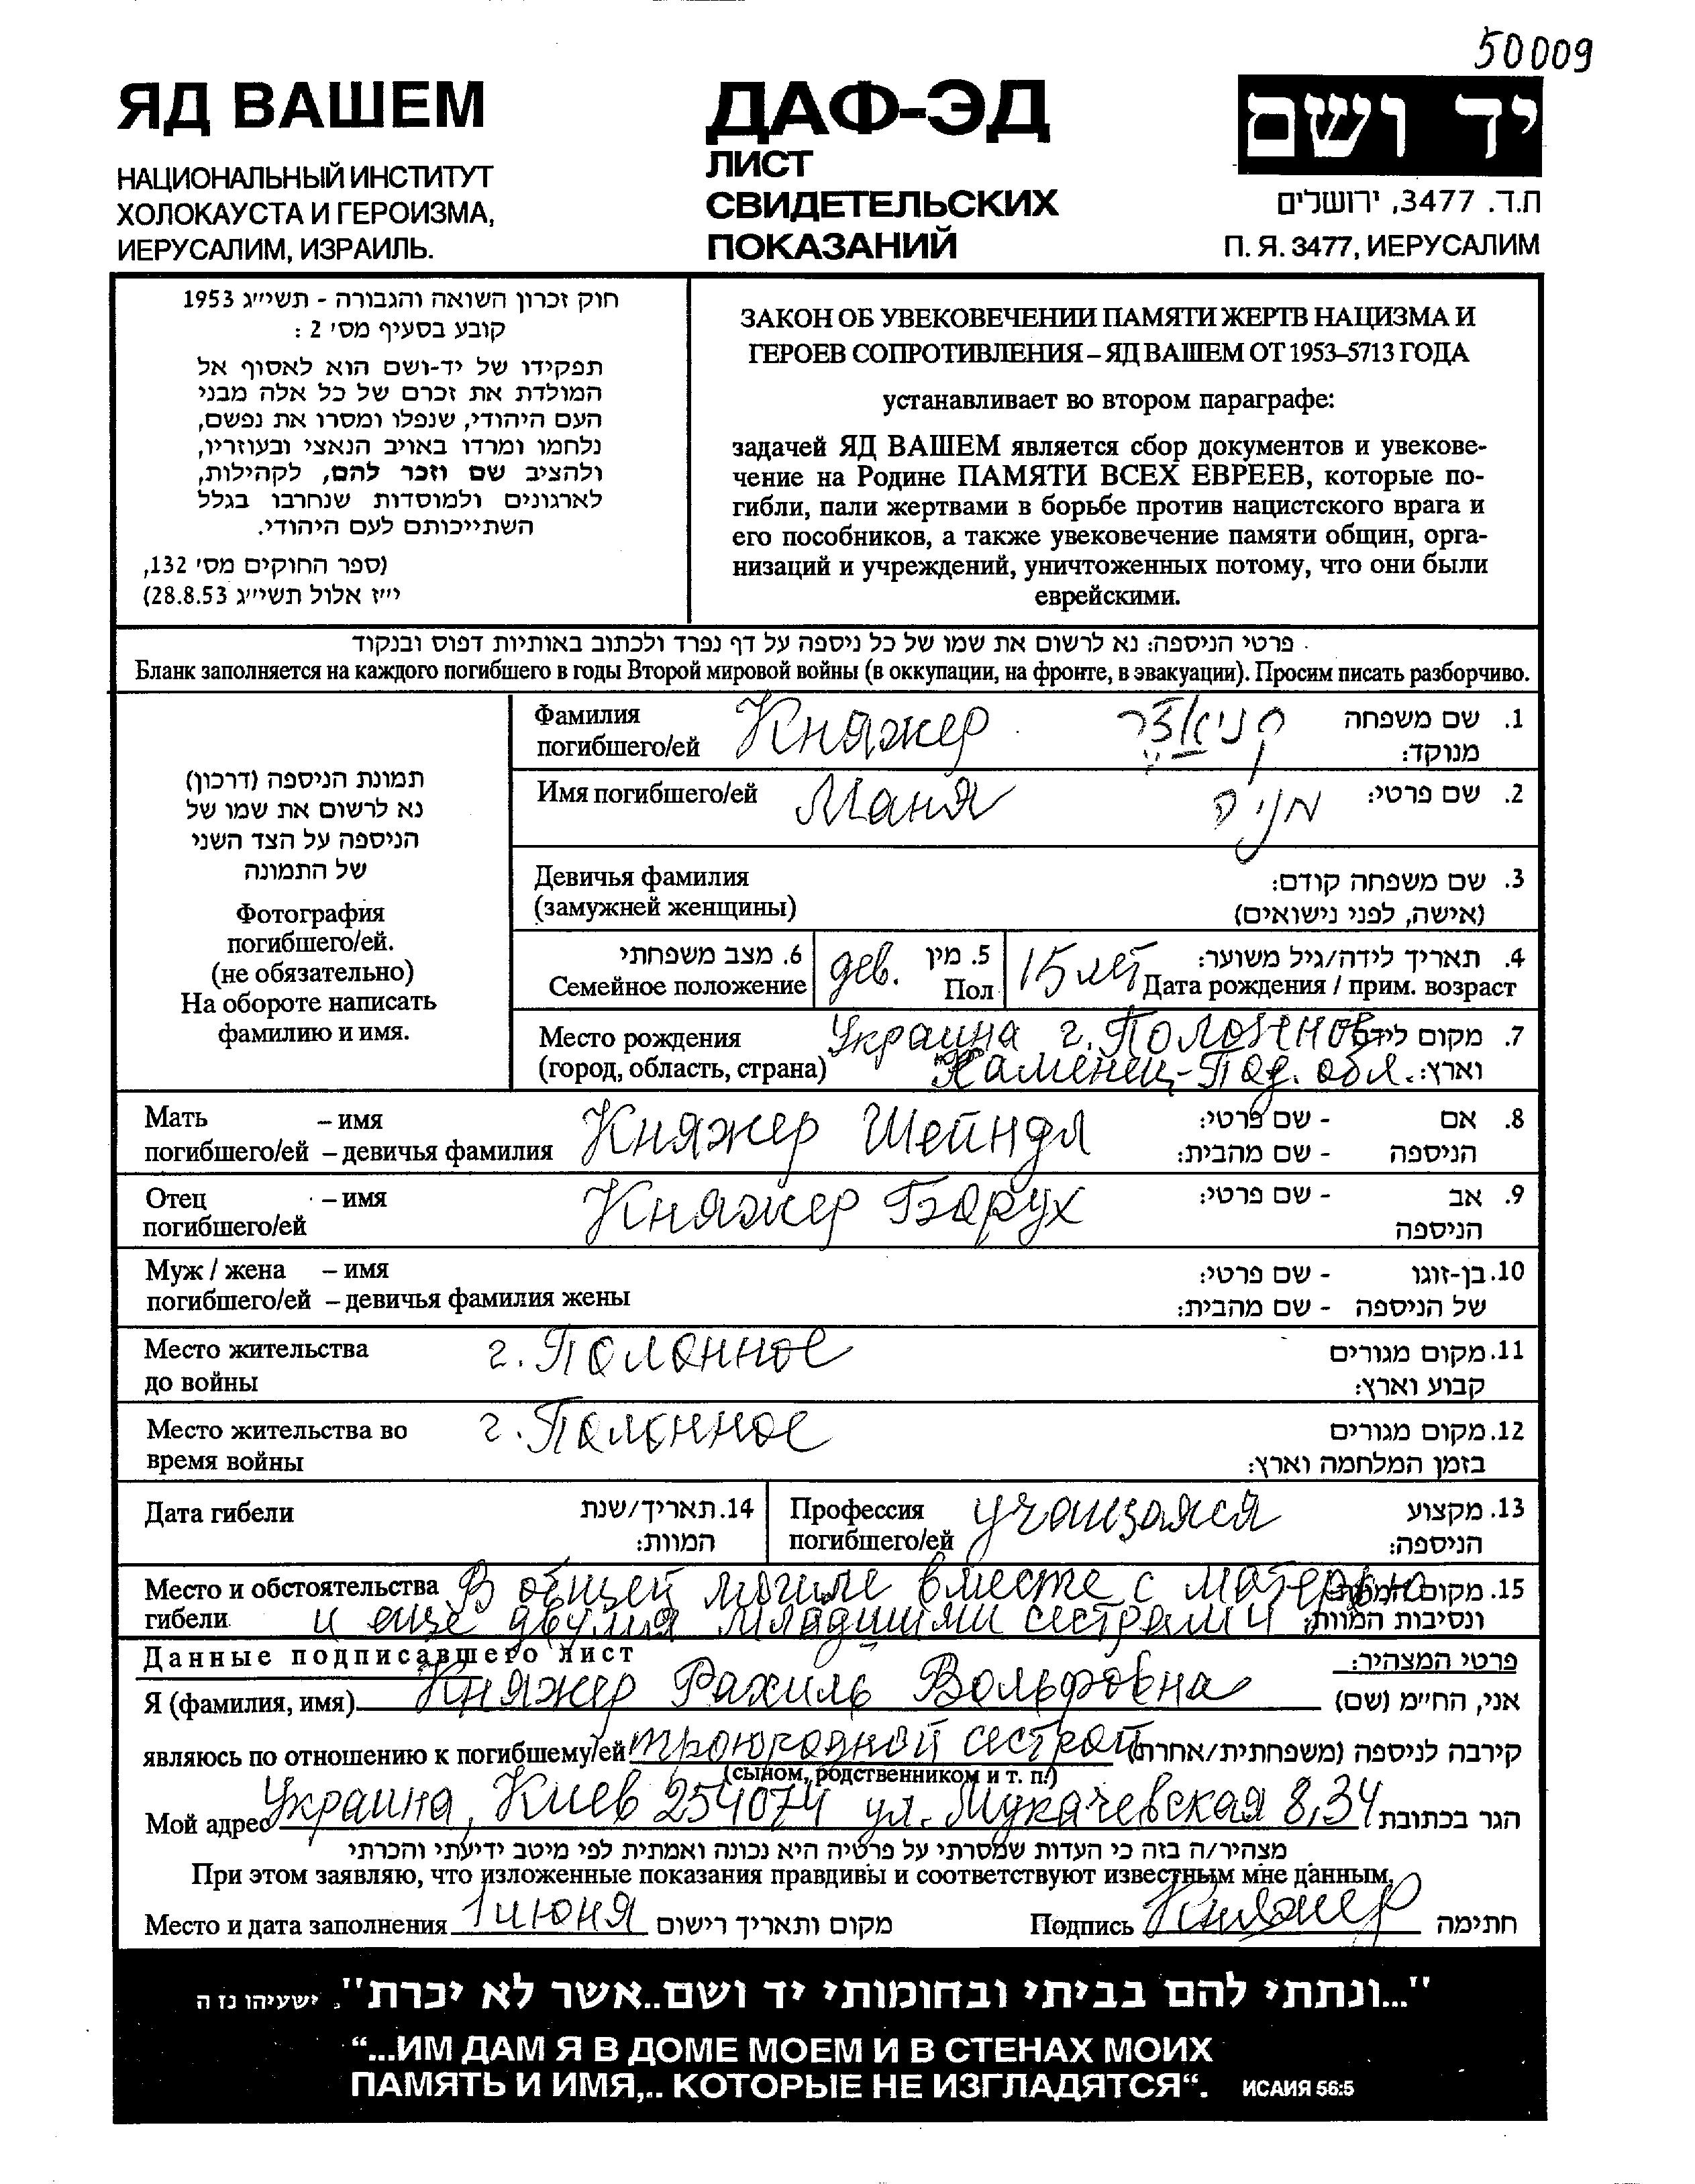 50009
ЯД ВАШЕМ
НАЦИОНАЛЬНЫЙ ИНСТИТУТ
ХОЛОКАУСТА И ГЕРОИЗМА,
ИЕРУСАЛИМ, ИЗРАИЛЬ.
ДАФ-ЭД
ЛИСТ
СВИДЕТЕЛЬСКИХ
ПОКАЗАНИЙ
יד ושם
ת.ד. 3477, ירושלים
П. Я. 3477, ИЕРУСАЛИМ
חוק זכרון השואה והגבורה - תשי״ג 1953
קובע בסעיף מס׳ 2 :
תפקידו של יד-ושם הוא לאסוף אל
המולדת את זכרם של כל אלה מבני
העם היהודי, שנפלו ומסרו את נפשם,
נלחמו ומרדו באויב הנאצי ובעוזריו,
ולהציב שם וזכר להם, לקהילות,
לארגונים ולמוסדות שנחרבו בגלל
השתייכותם לעם היהודי.
(ספר החוקים מס׳ 132,
י״ז אלול תשי״ג 28.8.53)
ЗАКОН ОБ УВЕКОВЕЧЕНИИ ПАМЯТИ ЖЕРТВ НАЦИЗМА И
ГЕРОЕВ СОПРОТИВЛЕНИЯ – ЯД ВАШЕМ ОТ 1953–5713 ГОДА
устанавливает во втором параграфе:
задачей ЯД ВАШЕМ является сбор документов и увекове-
чение на Родине ПАМЯТИ ВСЕХ ЕВРЕЕВ, которые по-
гибли, пали жертвами в борьбе против нацистского врага и
его пособников, а также увековечение памяти общин, орга-
низаций и учреждений, уничтоженных потому, что они были
еврейскими.
פרטי הניספה: נא לרשום את שמו של כל ניספה על דף נפרד ולכתוב באותיות דפוס ובנקוד
Бланк заполняется на каждого погибшего в годы Второй мировой войны (в оккупации, на фронте, в эвакуации). Просим писать разборчиво.
תמונת הניספה (דרכון)
נא לרשום את שמו של
הניספה על הצד השני
של התמונה
Фотография
погибшего/ей.
(не обязательно)
На обороте написать
фамилию и имя.
Фамилия Княжер קניאז׳ר 1. שם משפחה
погибшего/ей מנוקד:
Имя погибшего/ей Маня מניה 2. שם פרטי:
Девичья фамилия 3. שם משפחה קודם:
(замужней женщины) (אישה, לפני נישואים)
6. מצב משפחתי дев. 5. מין 15 лет 4. תאריך לידה/גיל משוער:
Семейное положение Пол Дата рождения / прим. возраст
Место рождения Украина г. Полонное 7. מקום לידה
(город, область, страна) Каменец-Под. обл. וארץ:
Мать – имя Княжер Шейндл 8. אם - שם פרטי:
погибшего/ей – девичья фамилия הניספה - שם מהבית:
Отец – имя Княжер Барух 9. אב - שם פרטי:
погибшего/ей הניספה
Муж / жена – имя 10. בן-זוגו - שם פרטי:
погибшего/ей – девичья фамилия жены של הניספה - שם מהבית:
Место жительства г. Полонное 11. מקום מגורים
до войны קבוע וארץ:
Место жительства во г. Полонное 12. מקום מגורים
время войны בזמן המלחמה וארץ:
Дата гибели 14. תאריך/שנת Профессия учащаяся 13. מקצוע
המוות: погибшего/ей הניספה:
Место и обстоятельства В общей могиле вместе с матерью 15. מקום המוות
гибели и еще двумя младшими сестрами ונסיבות המוות:
Данные подписавшего лист פרטי המצהיר:
Я (фамилия, имя) Княжер Рахиль Вольфовна אני, החי״מ (שם)
являюсь по отношению к погибшему/ей троюродной сестрой קירבה לניספה (משפחתית/אחרת)
(сыном, родственником и т. п.)
Мой адрес Украина, Киев 254074 ул. Мукачевская 8,34 הגר בכתובת
מצהיר/ה בזה כי העדות שמסרתי על פרטיה היא נכונה ואמתית לפי מיטב ידיעתי והכרתי
При этом заявляю, что изложенные показания правдивы и соответствуют известным мне данным.
Место и дата заполнения 1 июня מקום ותאריך רישום Подпись Княжер חתימה
"...ונתתי להם בביתי ובחומותי יד ושם..אשר לא יכרת". ישעיהו נז ה
“...ИМ ДАМ Я В ДОМЕ МОЕМ И В СТЕНАХ МОИХ
ПАМЯТЬ И ИМЯ,.. КОТОРЫЕ НЕ ИЗГЛАДЯТСЯ“. ИСАИЯ 56:5